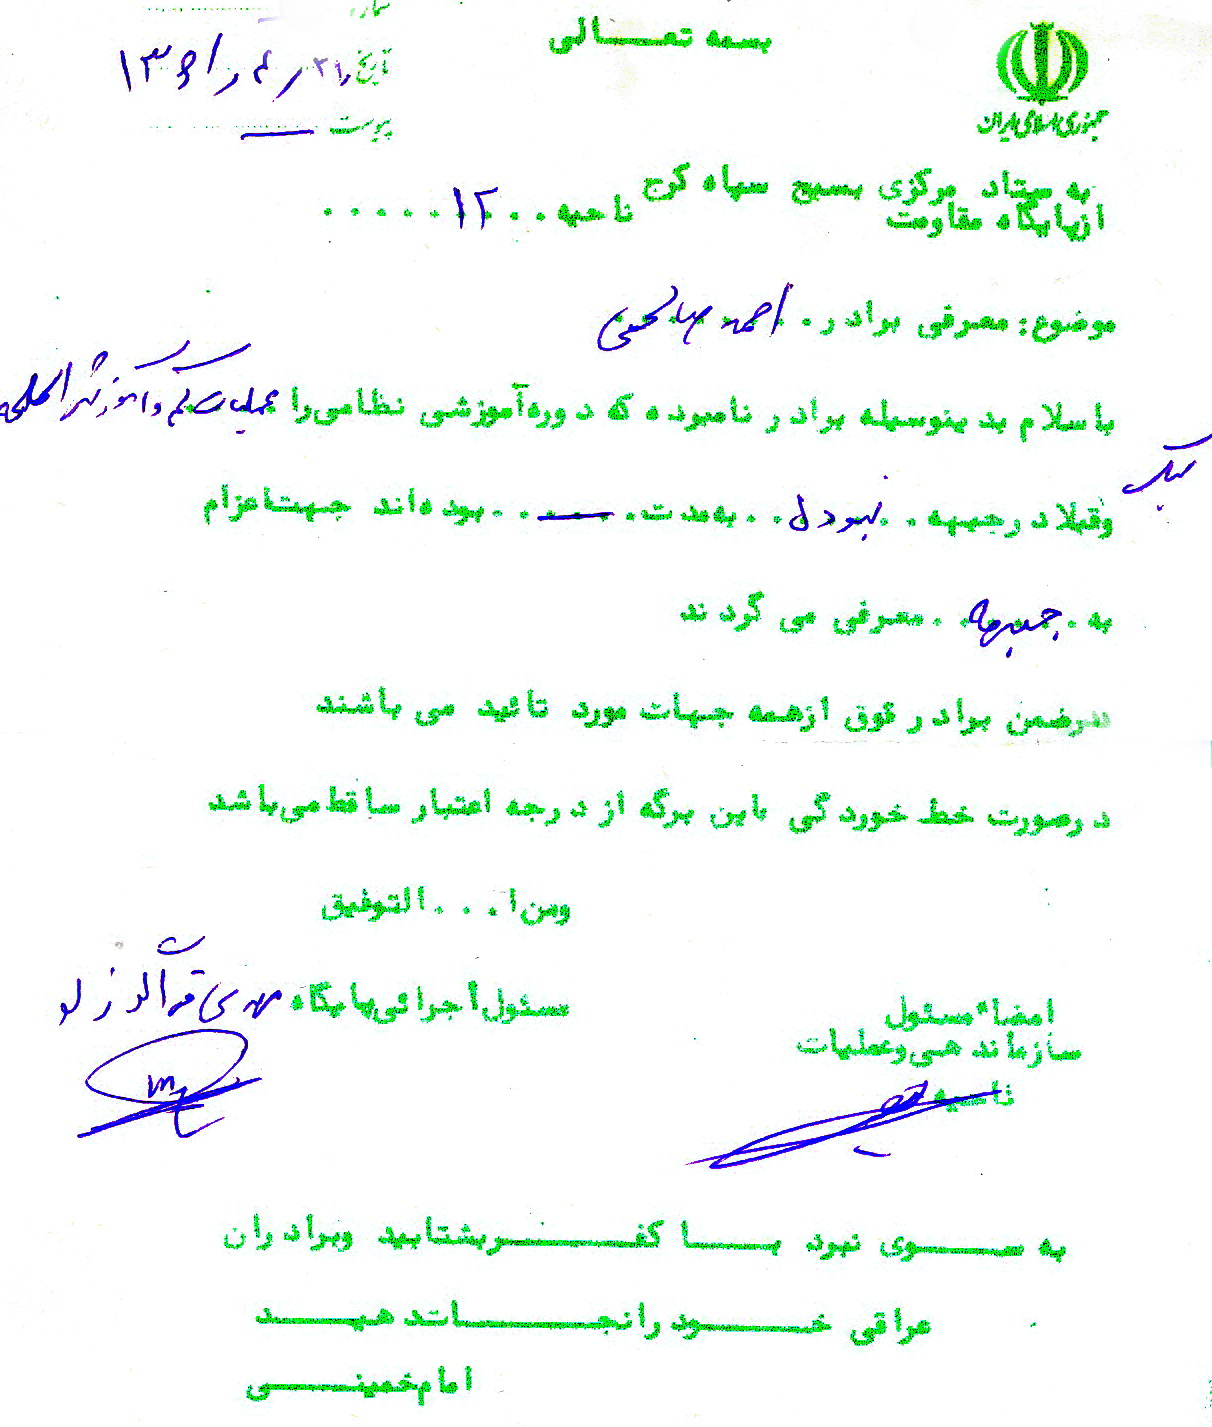 بسمه تعالی
جمهوری اسلامی ایران
شماره
تاریخ ۲۱ / ۴ / ۱۳۶۱
پیوست —
به ستاد مرکزی بسیج سپاه کرج
از پایگاه مقاومت ناحیه ۱۲
موضوع: معرفی برادر احمد صالحی
با سلام بدینوسیله برادر نامبرده که دوره آموزشی نظامی را عملیات کم و آموزش اسلحه
سبک
وقبلا در جبهه نبوده به مدت — بوده اند جهت اعزام
به جبهه معرفی می گردند
در ضمن برادر فوق از همه جهات مورد تائید می باشند
در صورت خط خوردگی باین برگه از درجه اعتبار ساقط می باشد
ومن ا... التوفیق
مسئول اجرائی پایگاه مهدی قراگوزلو
امضاء مسئول
سازماندهی و عملیات
ناحیه
به سوی نبرد با کفر بشتابید وبرادران
عراقی خود را نجات دهید
امام خمینی